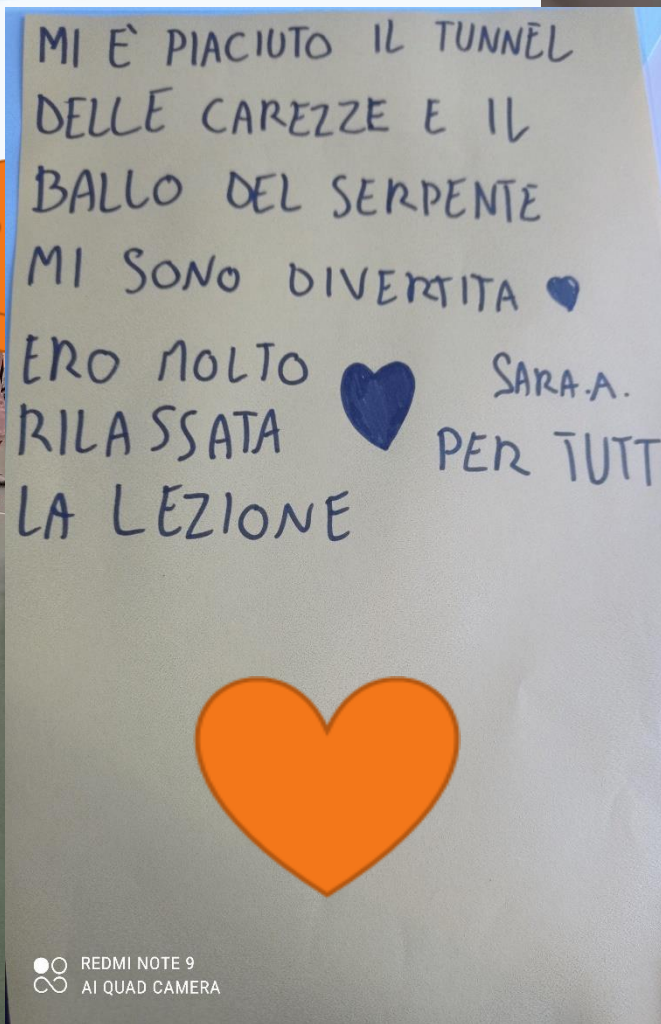 MI È PIACIUTO IL TUNNEL
DELLE CAREZZE E IL
BALLO DEL SERPENTE
MI SONO DIVERTITA
ERO MOLTO
RILASSATA
PER TUTT
LA LEZIONE
SARA.A.
REDMI NOTE 9
AI QUAD CAMERA